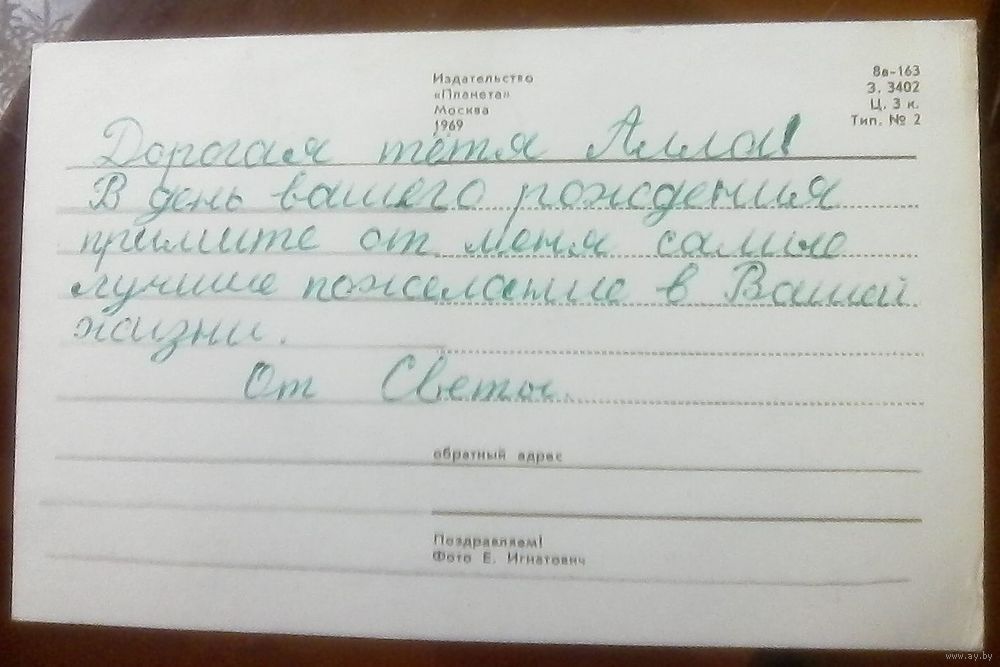 Издательство
«Планета»
Москва
1969
8в-163
З. 3402
Ц. 3 к.
Тип. № 2
Дорогая тётя Алла!
В день вашего рождения
примите от меня самые
лучшие пожелание в Вашей
жизни.
От Светы.
обратный адрес
Поздравляем!
Фото Е. Игнатович
www.ay.by